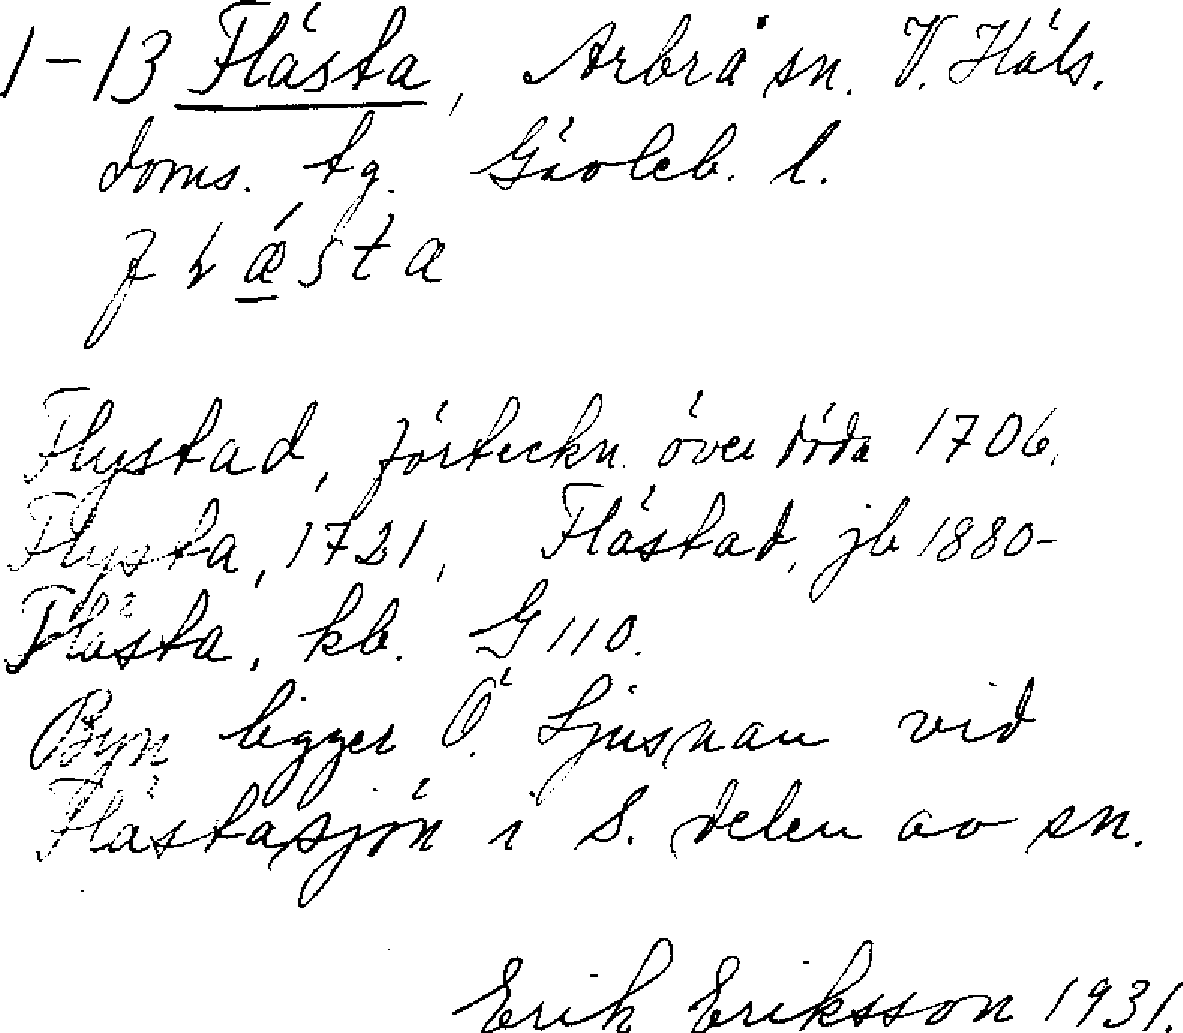 1-13 Flästa, Arbrå sn. V. Häls.
doms. tg. Gävleb. l.
Flystad, förteckn. över döda 1706.
Flysta, 1721, Flästad, jb 1880-
Flästa, kb. G 110.
Byn ligger Ö. Ljusnan vid
Flästasjön i S. delen av sn.
Erik Eriksson 1931.